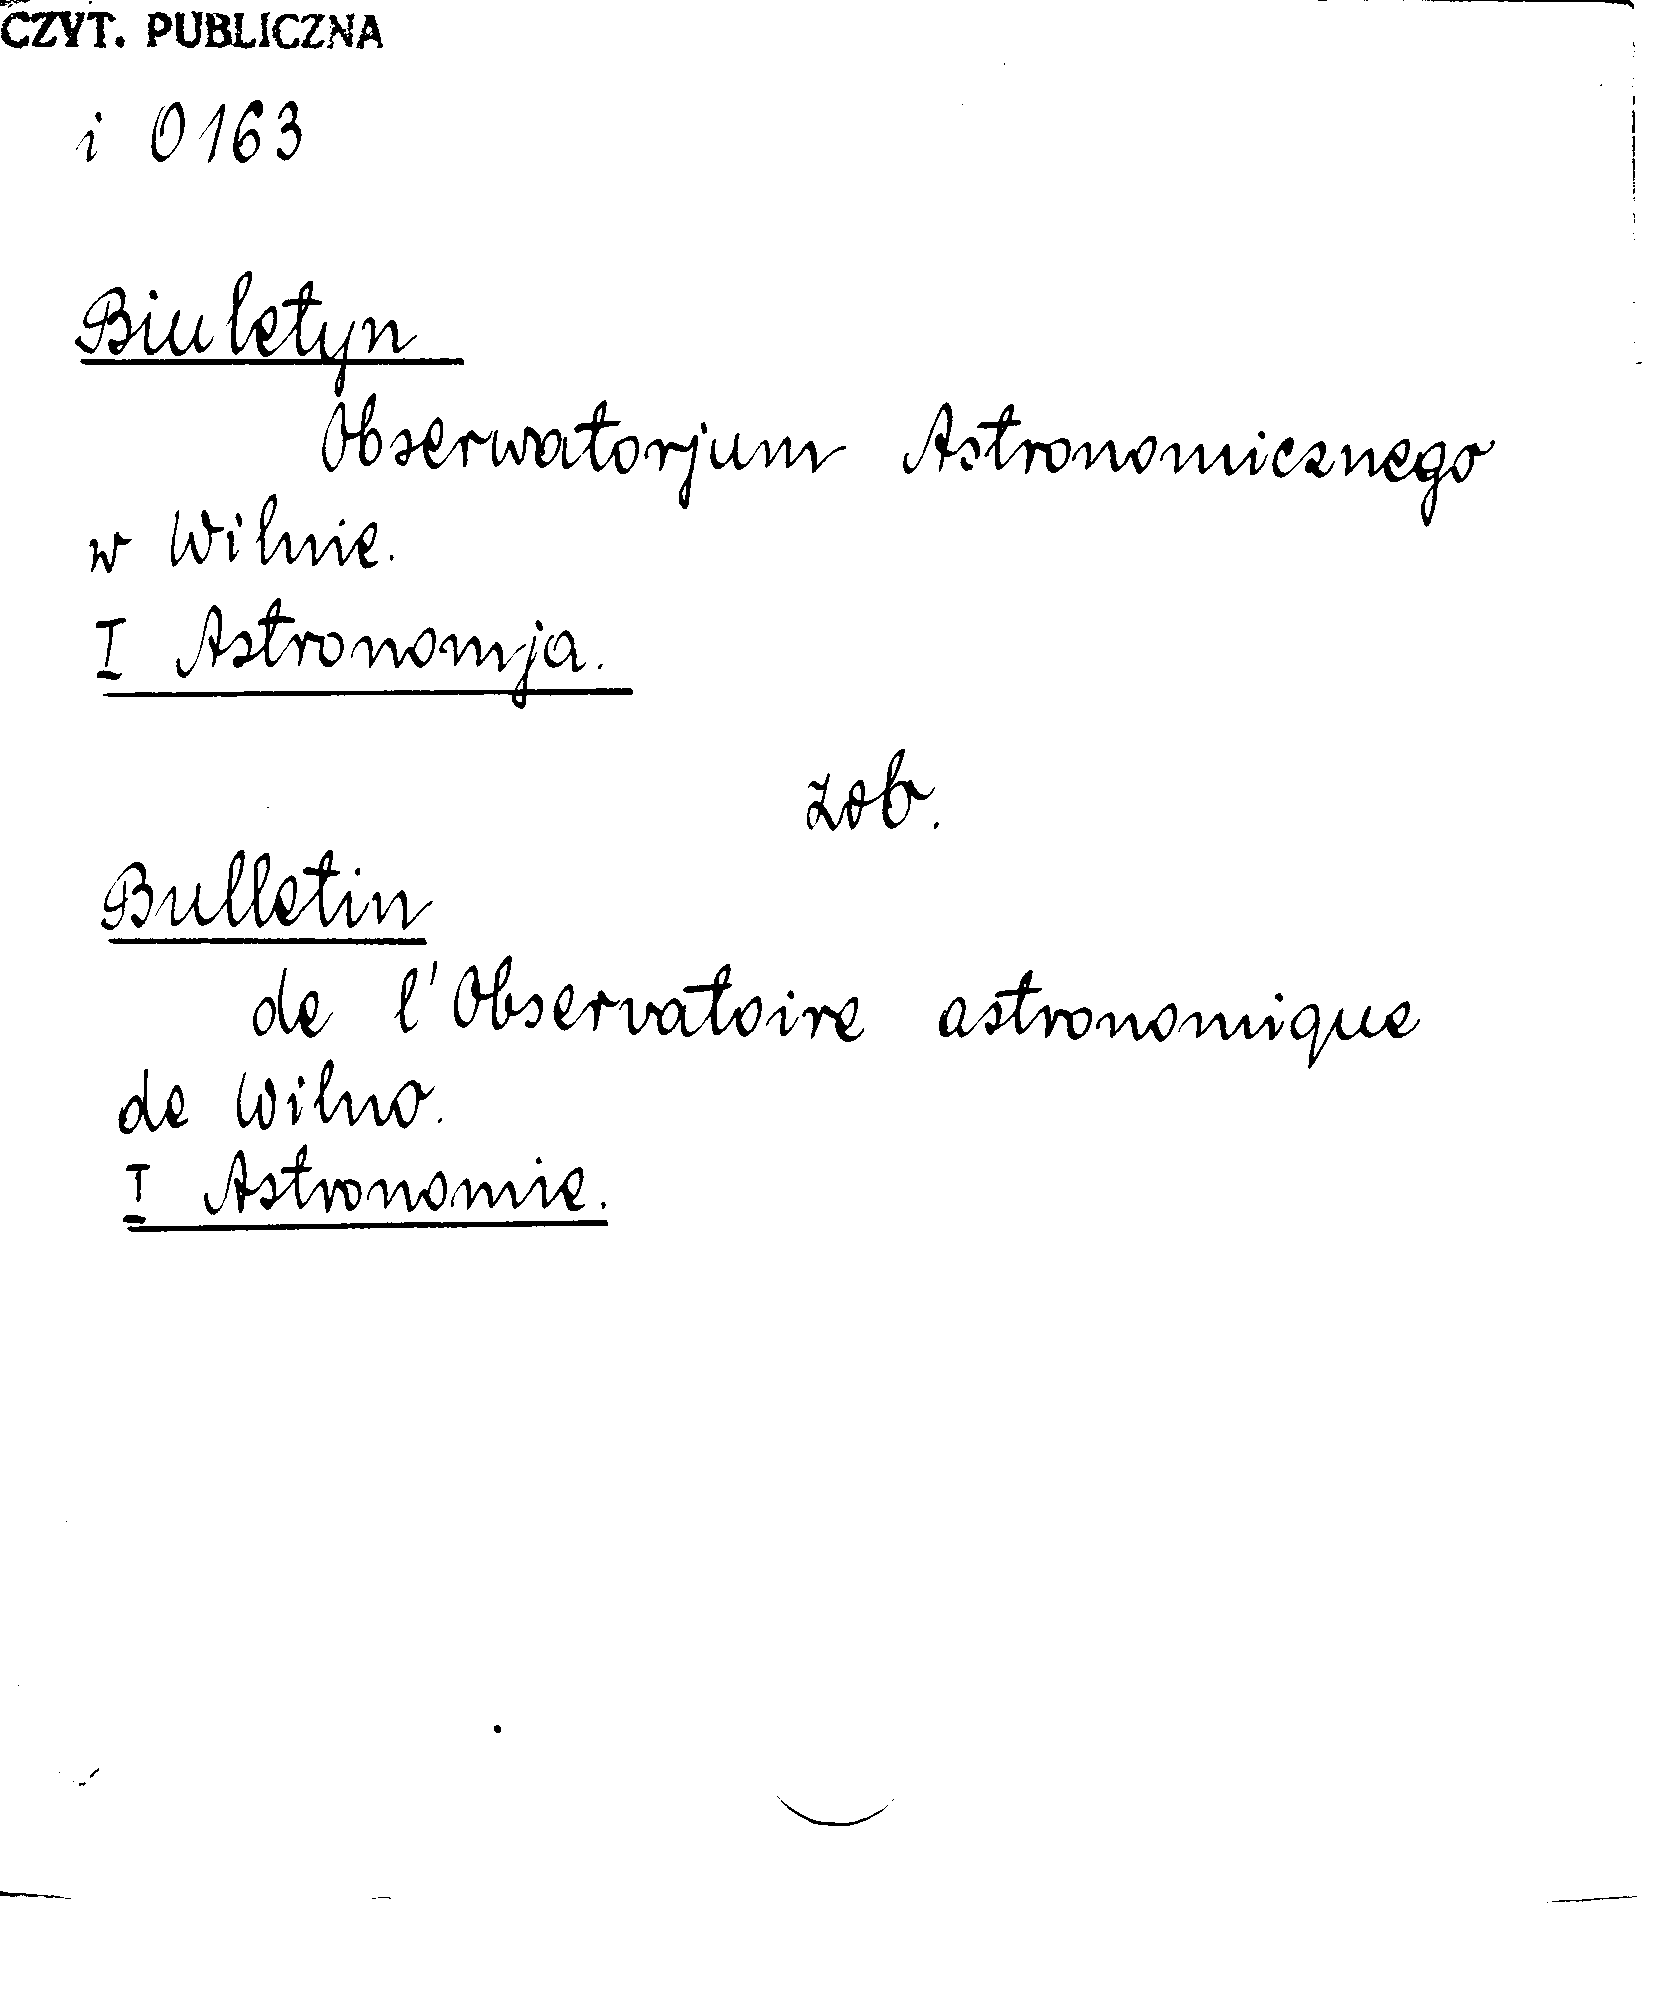 CZYT. PUBLICZNA
i 0163
Biuletyn
Obserwatorjum Astronomicznego
w Wilnie.
I Astronomja.
zob.
Bulletin
de l'Observatoire astronomique
de Wilno.
I Astronomie.